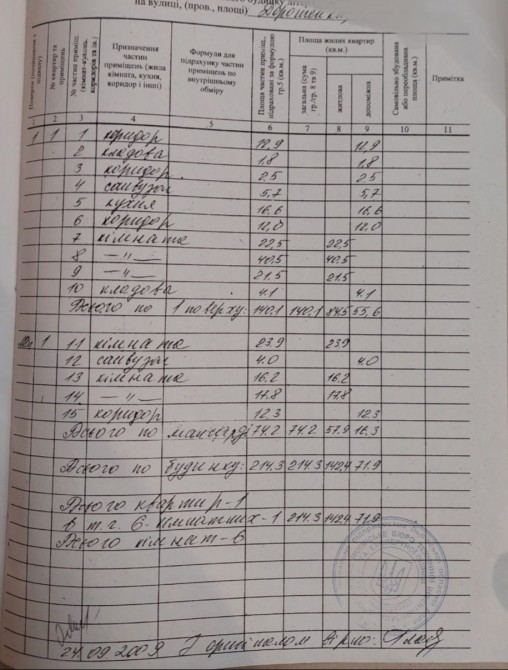 на вулиці, (пров., площі)
№ квартир та приміщень
№ частин приміщ. (кімнат-кухонь, коридорів та ін.)
Призначення частин приміщень (жила кімната, кухня, коридор і інші)
Формули для підрахунку частин приміщень по внутрішньому обміру
Площа частин приміщ., підраховані за формулою гр.5 (кв.м.)
Площа жилих квартир (кв.м.)
загальна (сума гр./гр. 8 та 9)
житлова
допоміжна
Самовільно збудована або переобладнана площа (кв.м.)
Примітка
2 3 4 5 6 7 8 9 10 11
1 1 1 коридор 12,9 12,9
2 кладова 1,8 1,8
3 коридор 2,5 2,5
4 санвузол 5,7 5,7
5 кухня 16,6 16,6
6 коридор 12,0 12,0
7 кімната 22,5 22,5
8 — " — 40,5 40,5
9 — " — 21,5 21,5
10 кладова 4.1 4.1
Всього по 1 поверху: 140.1 140.1 84.5 55,6
1 11 кімната 23.9 23.9
12 санвузол 4.0 4.0
13 кімната 16.2 16.2
14 — " — 17.8 17.8
15 коридор 12.3 12.3
Всього по мансарді 74.2 74.2 57.9 16.3
Всього по будинку: 214.3 214.3 142,4 71.9
Всього квартир-1
в т.ч. 6-кімнатних-1 214.3 142.4 71.9
Всього кімнат-6
24.09.2009 З оригіналом вірно: